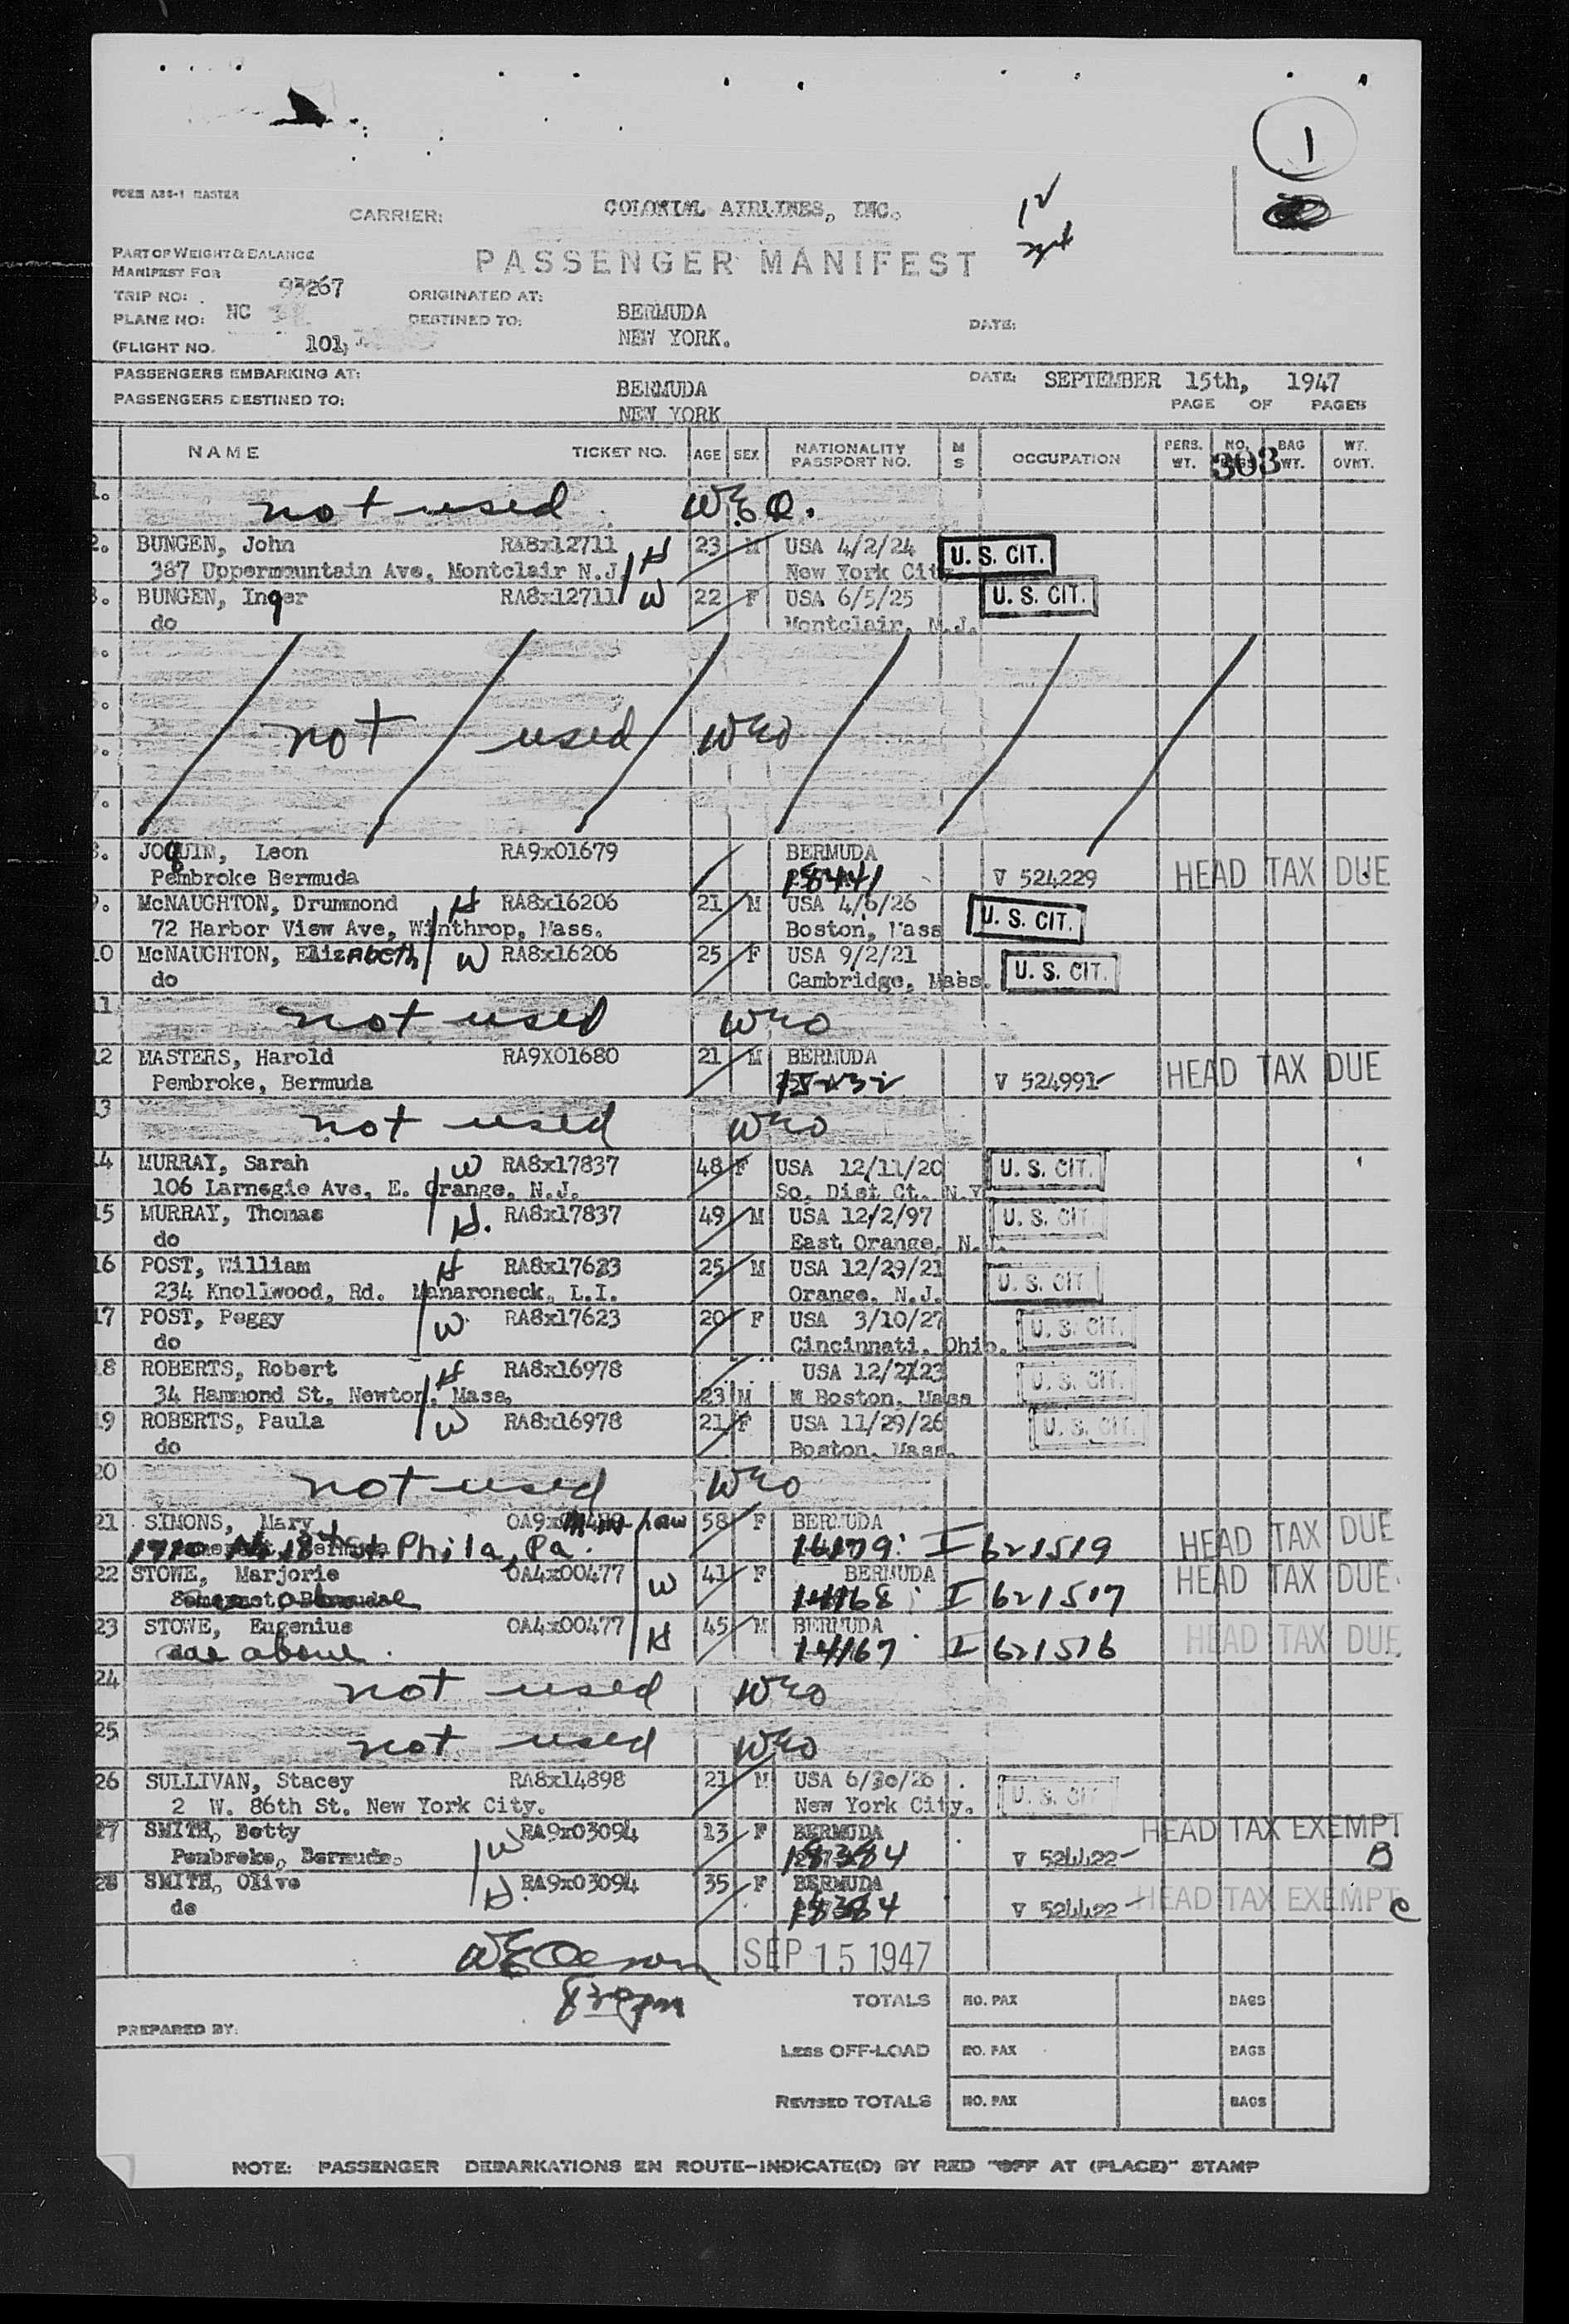 1
FORM A36-1 MASTER
CARRIER: COLONIAL AIRLINES, INC.
PART OF WEIGHT & BALANCE
MANIFEST FOR
PASSENGER MANIFEST
TRIP NO: 93267 ORIGINATED AT: BERMUDA
PLANE NO: NC DESTINED TO: NEW YORK. DATE:
(FLIGHT NO. 101)
PASSENGERS EMBARKING AT: BERMUDA DATE: SEPTEMBER 15th, 1947
PASSENGERS DESTINED TO: NEW YORK PAGE OF PAGES
NAME TICKET NO. AGE SEX NATIONALITY PASSPORT NO. M S OCCUPATION PERS. WT. NO. BAG WT. WT. OVHT.
303
1. not used WEO.
2. BUNGEN, John RA8x12711 H 23 M USA 4/2/24 U. S. CIT.
387 Uppermountain Ave, Montclair N.J. New York City
3. BUNGEN, Inger RA8x12711 W 22 F USA 6/5/25 U. S. CIT.
do Montclair, N.J.
not used WEO
8. JOQUIN, Leon RA9x01679 BERMUDA
Pembroke Bermuda V 524229 HEAD TAX DUE
9. McNAUGHTON, Drummond H RA8x16206 21 M USA 4/6/26 U. S. CIT.
72 Harbor View Ave, Winthrop, Mass. Boston, Mass
10 McNAUGHTON, Elizabeth W RA8x16206 25 F USA 9/2/21 U. S. CIT.
do Cambridge, Mass.
11 not used WEO
12 MASTERS, Harold RA9X01680 21 M BERMUDA
Pembroke, Bermuda V 524991 HEAD TAX DUE
13 not used WEO
14 MURRAY, Sarah W RA8x17837 48 F USA 12/11/20 U. S. CIT.
106 Larnegie Ave, E. Orange, N.J. So. Dist Ct. N.Y
15 MURRAY, Thomas H. RA8x17837 49 M USA 12/2/97 U. S. CIT.
do East Orange, N.J.
16 POST, William H RA8x17623 25 M USA 12/29/21 U. S. CIT.
234 Knollwood, Rd. Mamaroneck, L.I. Orange, N.J.
17 POST, Peggy W. RA8x17623 20 F USA 3/10/27 U. S. CIT.
do Cincinnati, Ohio.
18 ROBERTS, Robert H RA8x16978 USA 12/2/23 U. S. CIT.
34 Hammond St, Newton, Mass. 23 M M Boston, Mass
19 ROBERTS, Paula W RA8x16978 21 F USA 11/29/26 U. S. CIT.
do Boston, Mass.
20 not used WEO
21 SIMONS, Mary 58 F BERMUDA HEAD TAX DUE
St Phila, Pa. 14179 I 621519
22 STOWE, Marjorie OA4x00477 W 41 F BERMUDA HEAD TAX DUE
14168 I 621517
23 STOWE, Eugenius OA4x00477 H 45 M BERMUDA HEAD TAX DUE
as above. 14167 I 621516
24 not used WEO
25 not used WEO
26 SULLIVAN, Stacey RA8x14898 21 M USA 6/30/26 U. S. CIT
2 W. 86th St. New York City. New York City.
27 SMITH, Betty W RA9x03094 13 F BERMUDA HEAD TAX EXEMPT
Pembroke, Bermuda. 18384 V 524422 B
28 SMITH, Olive H. RA9x03094 35 F BERMUDA HEAD TAX EXEMPT
do 18384 V 524422 C
SEP 15 1947
830pm
PREPARED BY:
TOTALS NO. PAX BAGS
Less OFF-LOAD NO. PAX BAGS
REVISED TOTALS NO. PAX BAGS
NOTE: PASSENGER DEBARKATIONS EN ROUTE-INDICATE(D) BY RED "OFF AT (PLACE)" STAMP